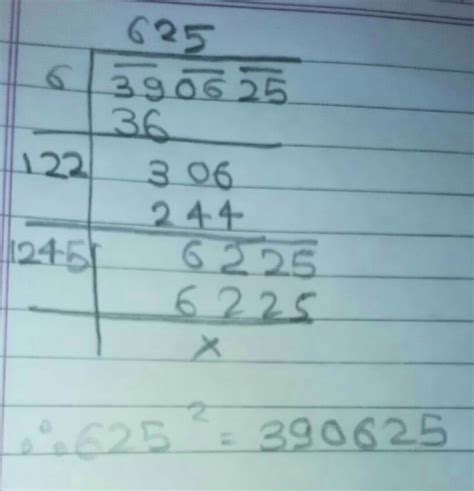 625
6 39 06 25
36
122 306
244
1245 6225
6225
x
∴ 625² = 390625